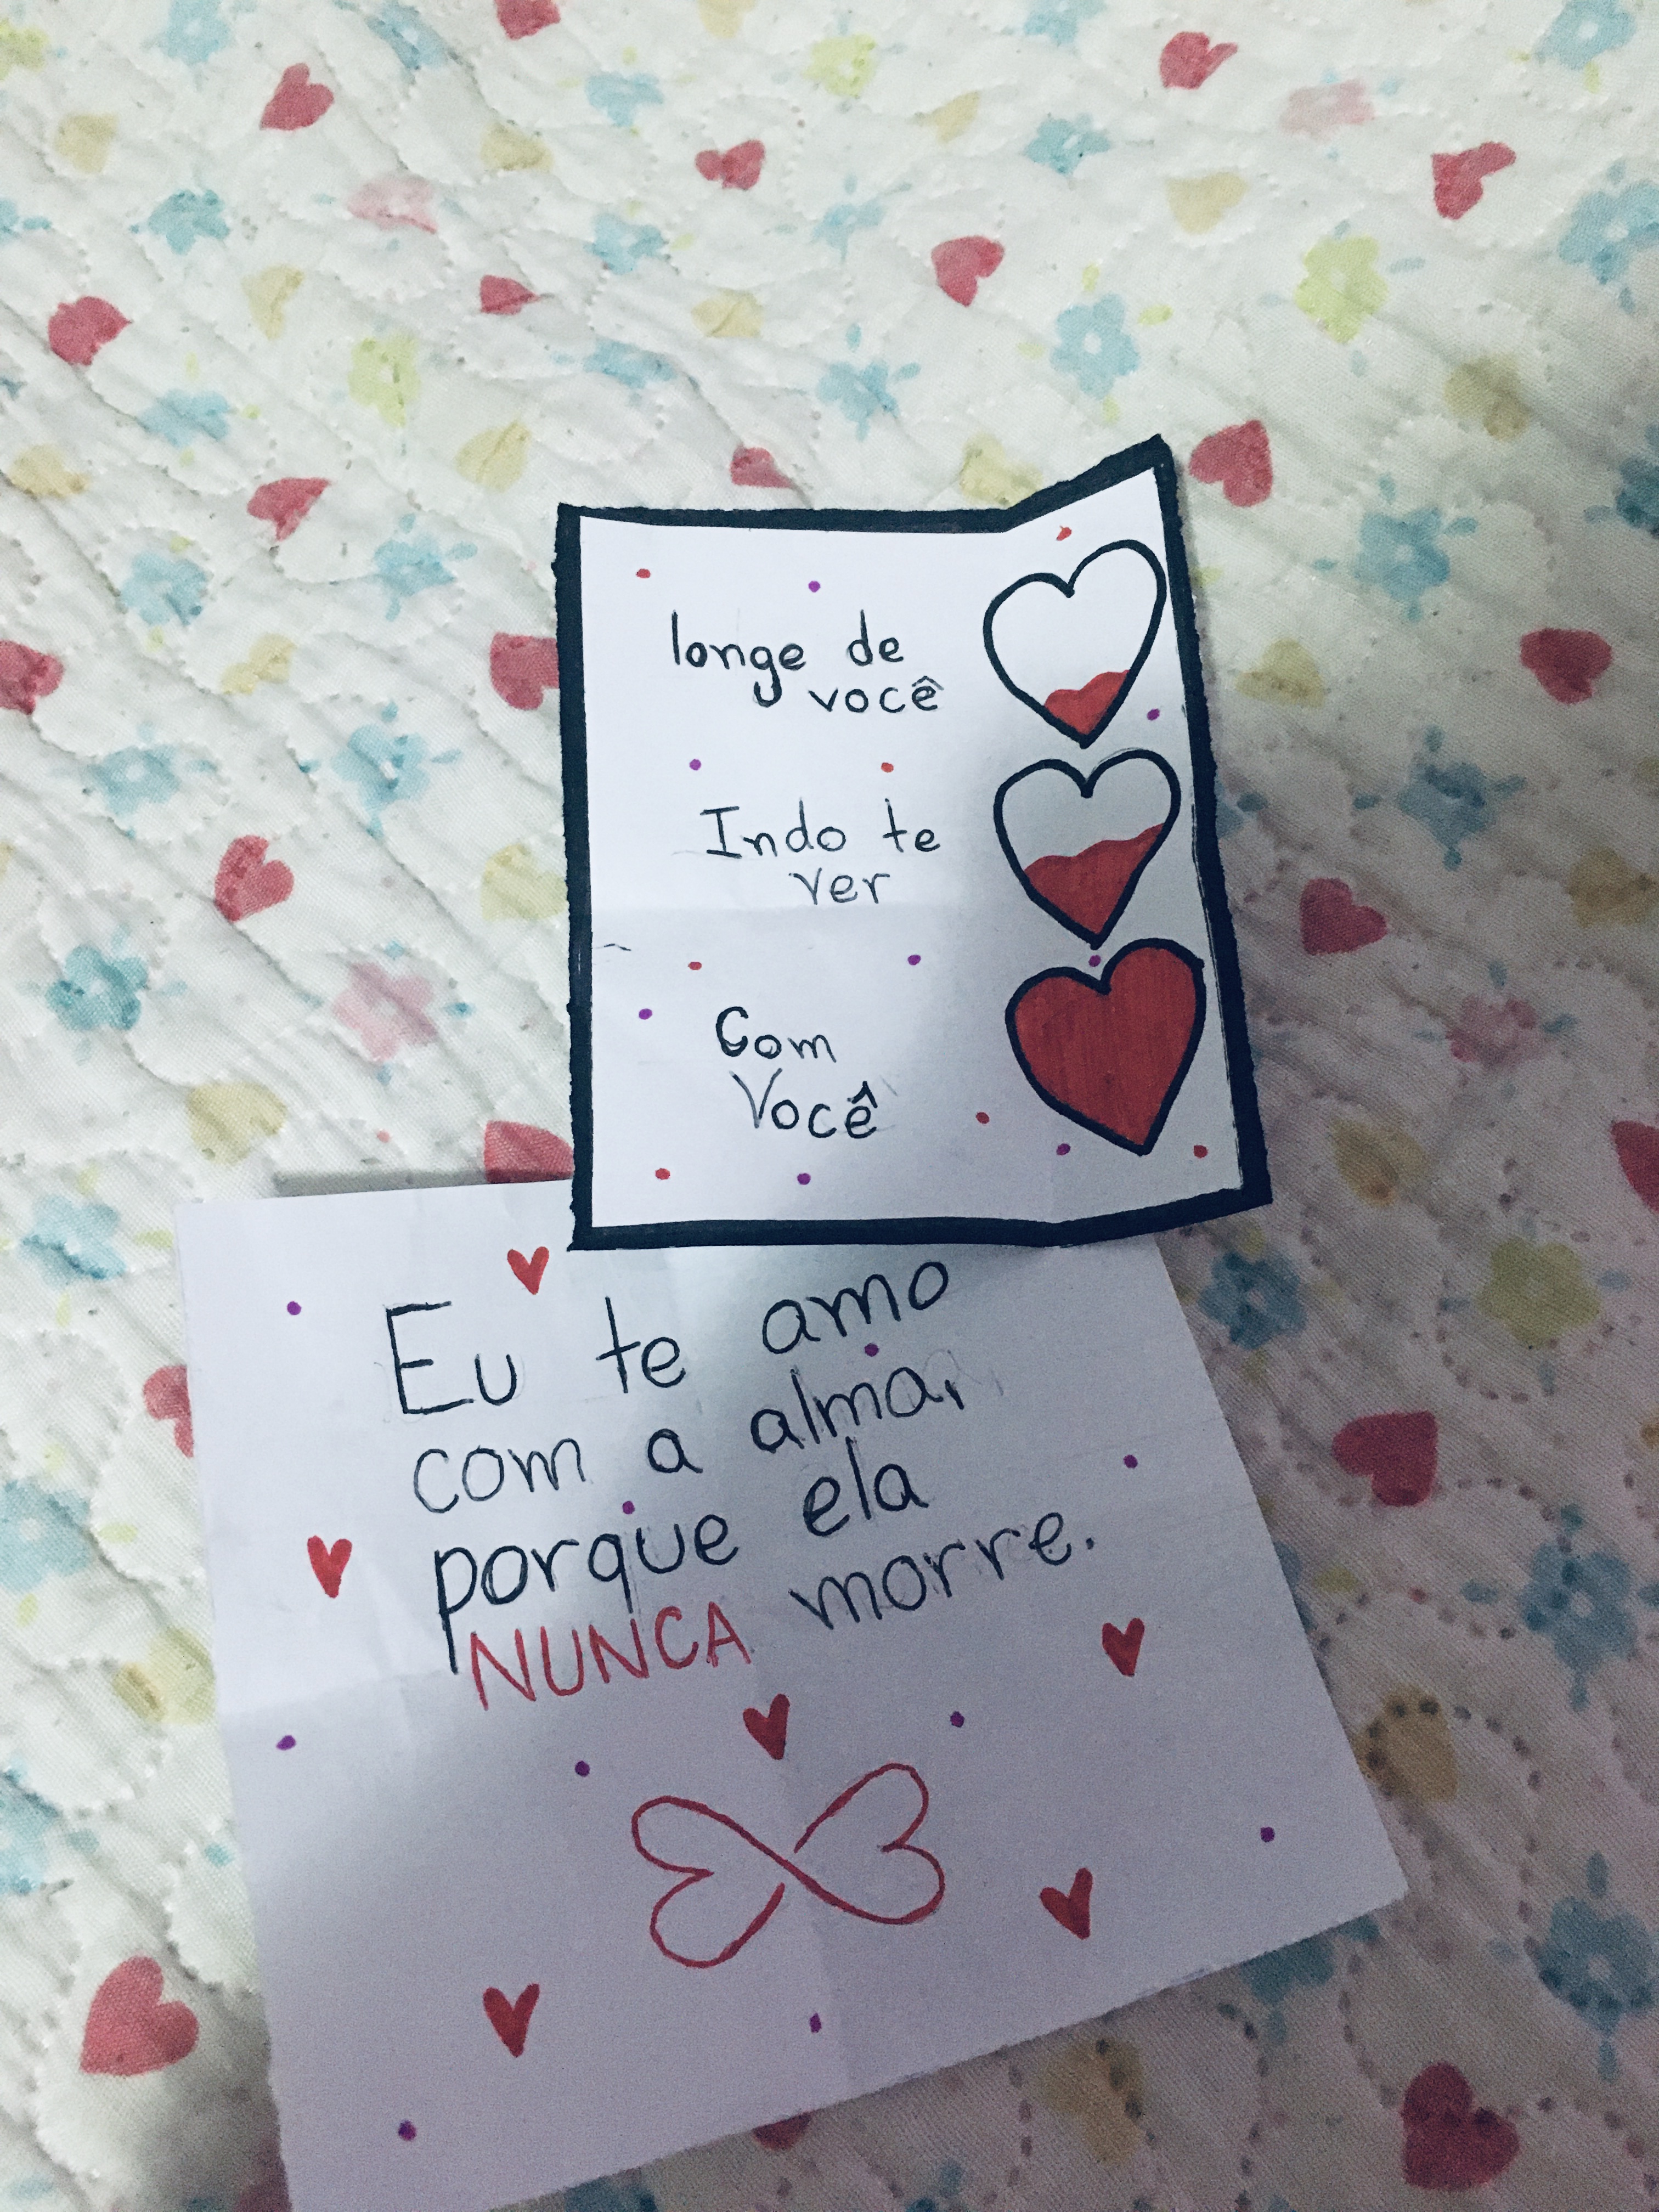 longe de
você
Indo te
ver
Com
Você
Eu te amo
com a alma,
porque ela
NUNCA morre.